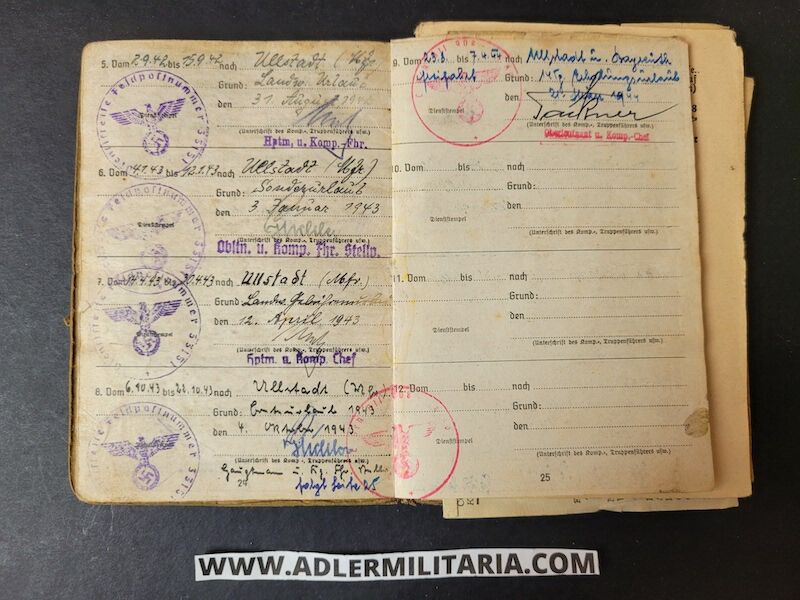 5. Vom 2.9.42 bis 15.9.42 nach Ullstadt (Mfr.
Grund: Landw. Urlaub
31. August 1942
Dienststempel
(Unterschrift des Komp.-, Truppenführers usw.)
Hptm. u. Komp.-Fhr.
6. Vom 4.1.43 bis 12.1.43 nach Ullstadt (Mfr)
Grund: Sonderurlaub
den 3. Januar 1943
Dienststempel
(Unterschrift des Komp.-, Truppenführers usw.)
Obltn. u. Komp. Fhr. Stellv.
7. Vom 14.4.43 bis 30.4.43 nach Ullstadt (Mfr.)
Grund: Landw.
den 12. April 1943
(Unterschrift des Komp.-, Truppenführers usw.)
Hptm. u. Komp. Chef
8. Vom 6.10.43 bis 22.10.43 nach Ullstadt
Grund: Ernteurlaub 1943
den 4. Oktober 1943
(Unterschrift des Komp.-, Truppenführers usw.)
Hauptmann u.
24 folgt Seite 25
Feldpostnummer 35151
Feldpostnummer 35151
Feldpostnummer 35151
Feldpostnummer 35151
9. Vom bis 7.4.44 nach Ullstadt u. Bayreuth
Grund: 14 Tg.
den 1944
Dienststempel
(Unterschrift des Komp.-, Truppenführers usw.)
Oberleutnant u. Komp.-Chef
10. Vom bis nach
Grund:
den
Dienststempel
(Unterschrift des Komp.-, Truppenführers usw.)
11. Vom bis nach
Grund:
den
Dienststempel
(Unterschrift des Komp.-, Truppenführers usw.)
12. Vom bis nach
Grund:
den
Dienststempel
(Unterschrift des Komp.-, Truppenführers usw.)
25
WWW.ADLERMILITARIA.COM